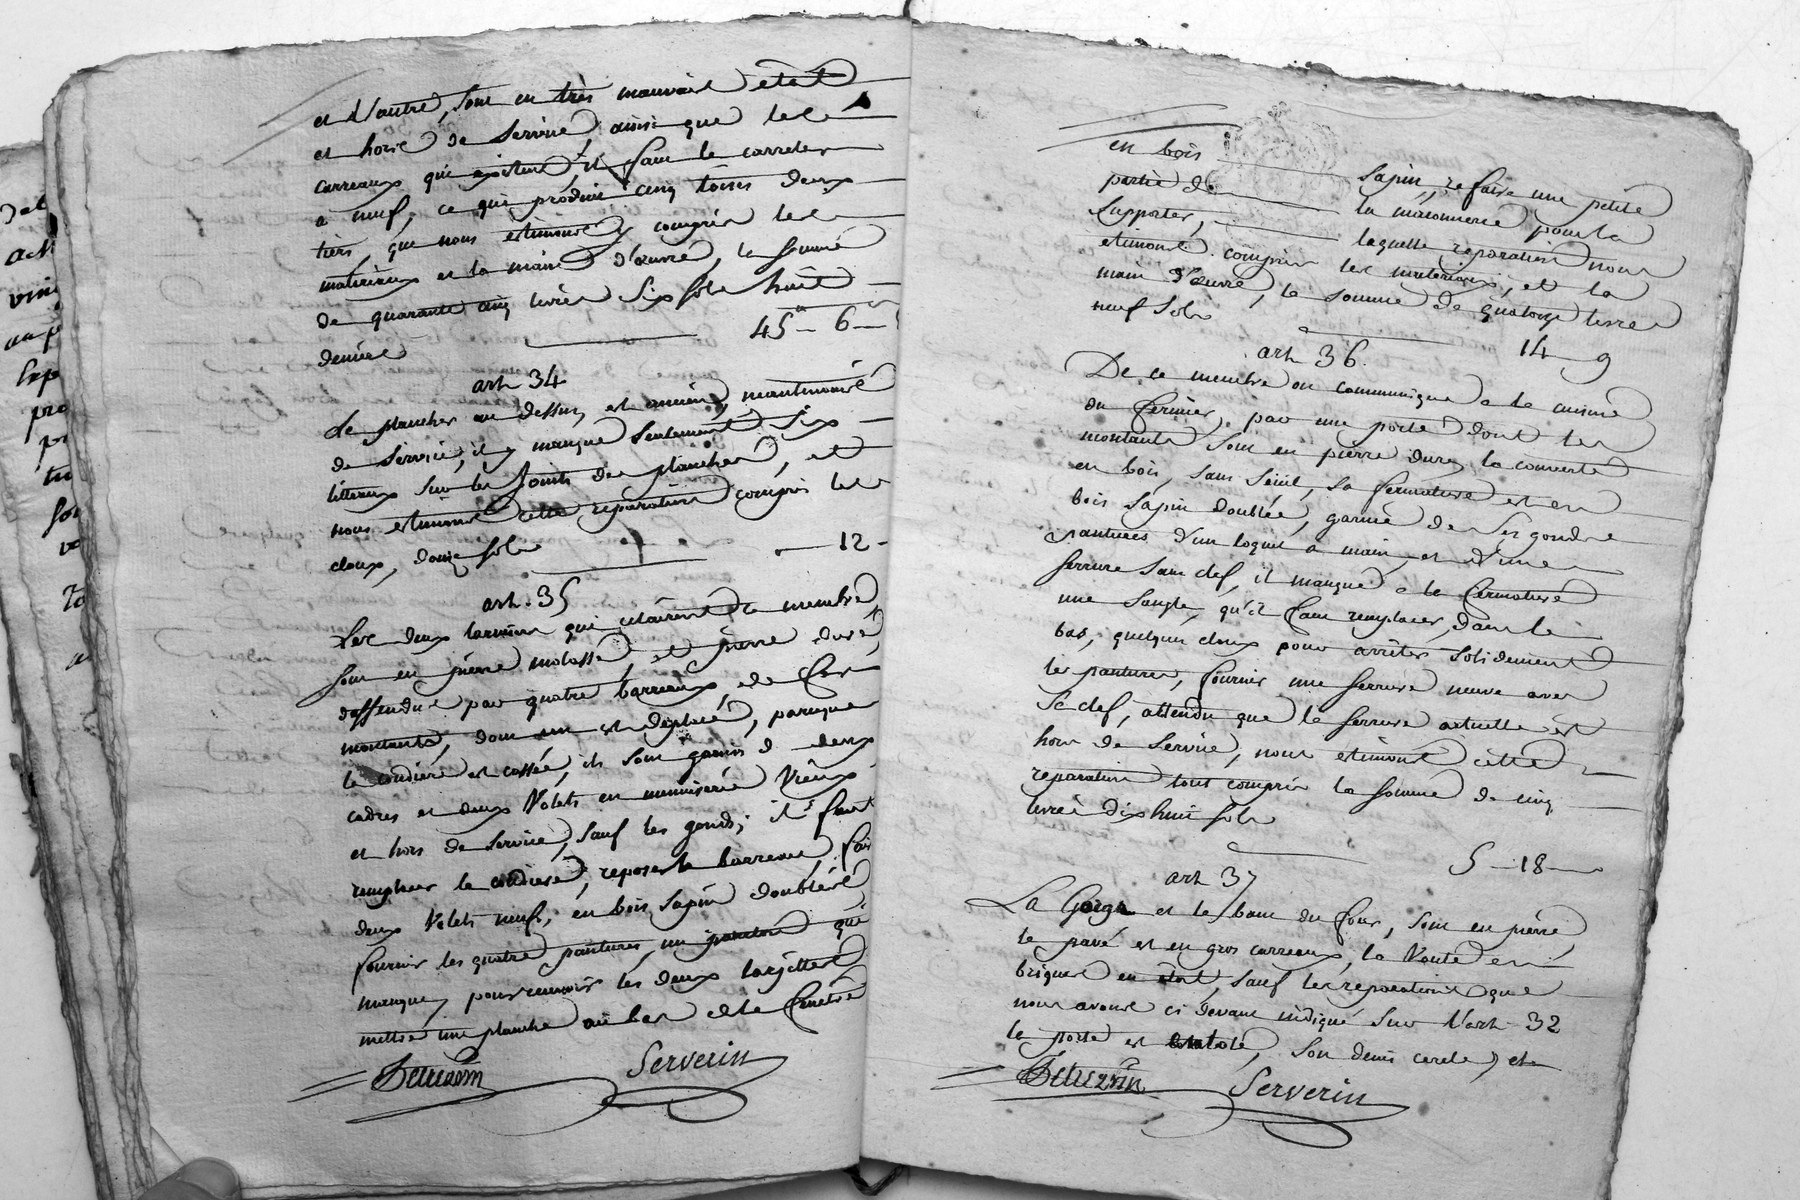 et l'autre, sont en très mauvais état
et hors de service, ainsi que les
carreaux qui existent, il faut le carreler
a neuf, ce qui produit cinq toises deux
tiers, que nous estimons y compris les
materiaux et la main d'œuvre, la somme
de quarante cinq livres six sols huit
deniers
45 - 6 -
art 34
Le plancher au dessus, est ancien, maintenant
de service, il y manque seulement six
litteaux sur les joints des planches, et
nous estimons cette reparation compris les
cloux, douze sols
12 -
art. 35
Les deux larmiers qui eclairent ce membre,
sont en pierre molasse, et pierre dure,
deffendus par quatre barreaux, de fer
montants, dont un est déplacé, parceque
la coudière est cassée, ils sont garnis de deux
cadres et deux Volets en menuiserie vieux
et hors de service, sauf les gonds; il faut
remplacer la coudière, reposer le barreau, fair
deux Volets neufs, en bois sapin doublés
fournir les quatre pantures, un qui
manque, pour les deux targettes
mettre une planche au bas de la fenêtre
Serverin
en bois sapin, refaire une petite
partie de la maçonnerie pour la
supporter, laquelle reparation nous
estimons compris les materiaux, et la
main d'œuvre, la somme de quatorze livres
neuf sols
14 - 9
art 36.
De ce membre on communique a la cuisine
du fermier, par une porte dont les
montants sont en pierre dure, la couverte
en bois, sans seuil, sa fermeture est en
bois sapin doublée, garnie de ses gonds
pantures d'un loquet a main, et d'une
serrure sans clef, il manque a la fermeture
une sangle, qu'il faut remplacer, dans le
bas, quelques cloux pour arrêter solidement
les pantures, fournir une serrure neuve avec
sa clef, attendu que la serrure actuelle est
hors de service, nous estimons cette
reparation tout compris la somme de cinq
livres dix huit sols
5 - 18 -
art 37
La Gorge et le banc du four, sont en pierre
le pavé est en gros carreaux, la Voute en
briques en état, sauf les reparations que
nous avons ci devant indiqué sur l'art 32
la porte est en tole, son demi cercle, et
Serverin